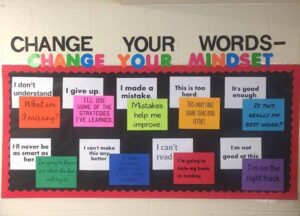 CHANGE YOUR WORDS-
CHANGE YOUR MINDSET
I don't
understand.
What am
I missing?
I give up.
I'LL USE
SOME OF THE
STRATEGIES
I'VE LEARNED.
I made a
mistake.
Mistakes
help me
improve.
This is too
hard.
THIS MAY TAKE
SOME TIME AND
EFFORT.
It's good
enough.
IS THIS
REALLY MY
BEST WORK?
I'll never be
as smart as
her.
I can't make this
any better.
I can't
read
I'm going to
train my brain
in reading.
I'm not
good at this.
I'm on the
right track